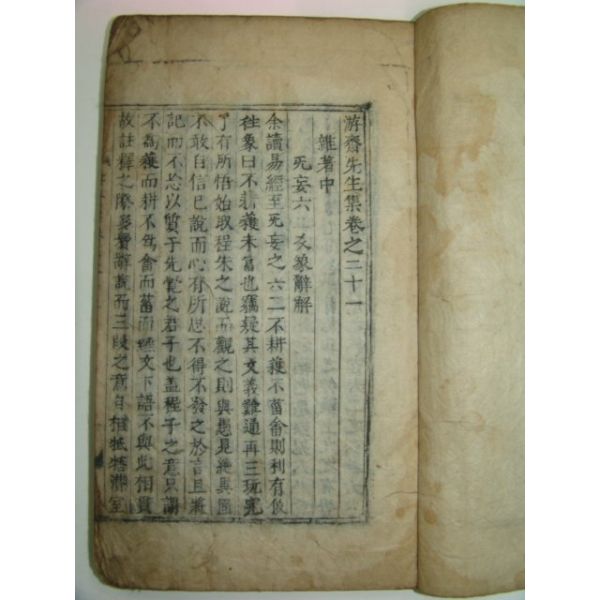 游齋先生集卷之二十一
雜著中
无妄六二爻象辭解
余讀易經至无妄之六二不耕穫不菑畬則利有攸
往象曰不耕穫未富也竊疑其文義難通再三玩究
了有所悟始取程朱之說而觀之則與愚見絶異固
不敢自信已說而心有所思不得不發之於言且將
記而不忘以質于先覺之君子也盖程子之意只謂
不爲穫而耕不爲畬而菑而經文下語不與此相貫
故註釋之際多費辭說而三段之意自相抵牾滯窒